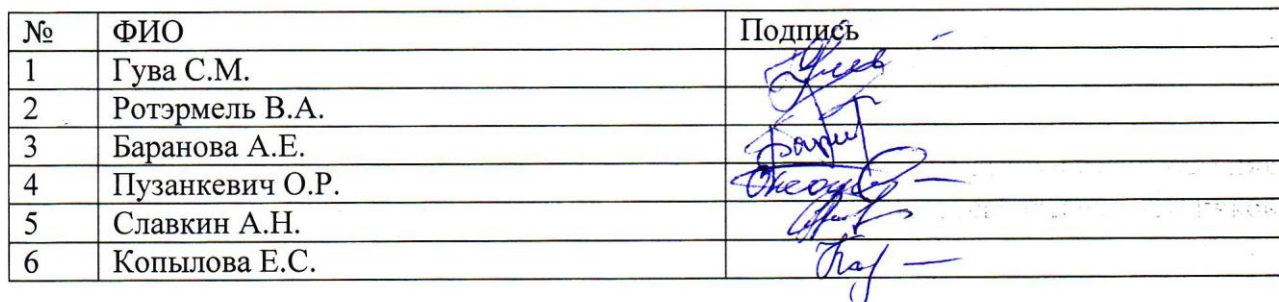 № ФИО Подпись
1 Гува С.М.
2 Ротэрмель В.А.
3 Баранова А.Е.
4 Пузанкевич О.Р.
5 Славкин А.Н.
6 Копылова Е.С.